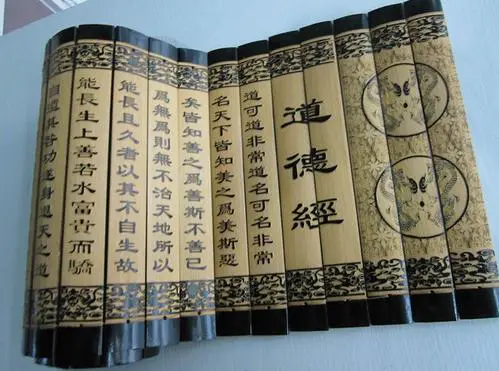 道德經
道可道非常道名可名非常
名天下皆知美之爲美斯惡
矣皆知善之爲善斯不善已
爲無爲則無不治天地所以
能長且久者以其不自生故
能長生上善若水富貴而驕
自遺其咎功遂身退天之道